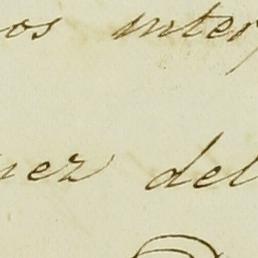 os inter
uez del